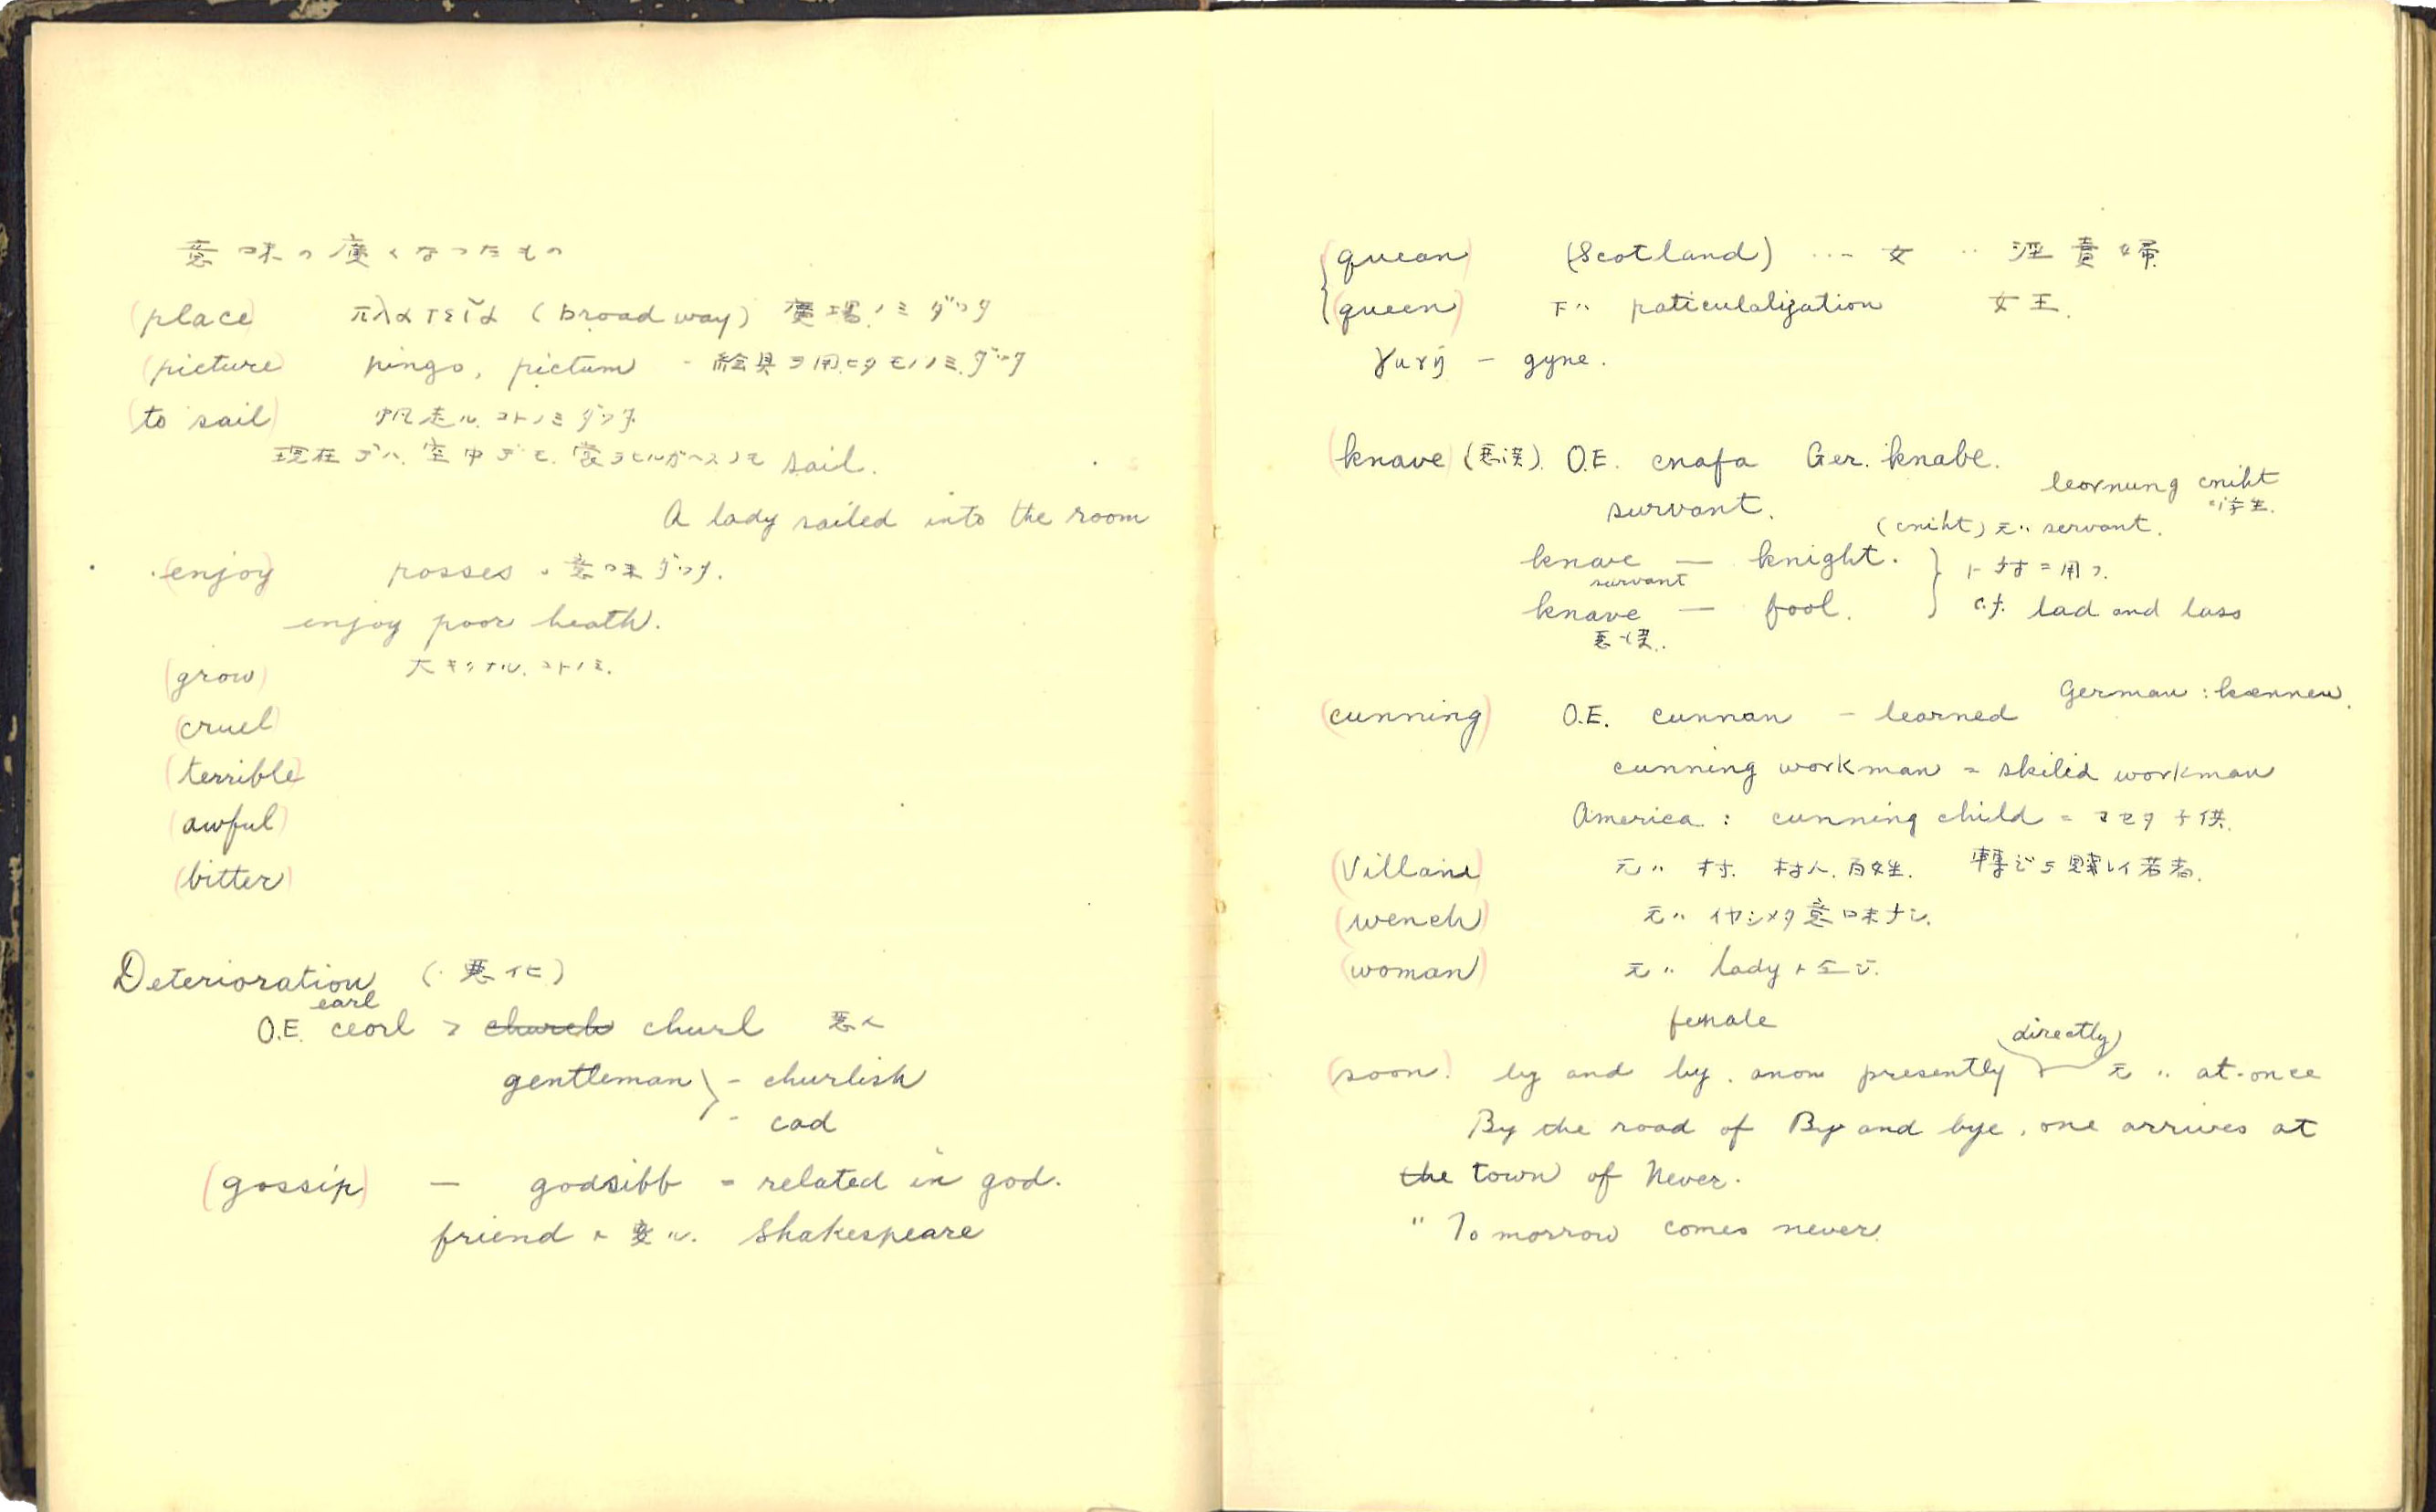 意味の廣くなったもの
(place) πλατεῖα (broad way) 廣場ノミダッタ
(picture) pingo, pictum - 絵具ヲ用ヒタモノノミダッタ
(to sail) 帆走ル コトノミダッタ
現在デハ、空中デモ、裳ヲヒルガヘスノモ sail.
A lady sailed into the room
(enjoy) posses ノ意味ダッタ.
enjoy poor heath.
(grow) 大キクナル、コトノミ.
(cruel)
(terrible)
(awful)
(bitter)
Deterioration (悪化)
earl
O.E. ceorl > church churl 悪人
gentleman - churlish
- cad
(gossip) — godsibb = related in god.
friend ト変ル. Shakespeare
(quean) (Scotland) ... 女 .. 淫賣婦
(queen) 下ハ paticulalization 女王.
γυνή — gyne.
(knave) (悪漢). O.E. cnafa Ger. knabe.
leornung cniht
survant. (cniht) 元ハ servant. 学生.
knave — knight. } ト対ニ用フ.
survant
knave — fool. c.f. lad and lass
悪漢.
German : kennen.
(cunning) O.E. cunnan — learned
cunning workman = skilid workman
America : cunning child = マセタ子供.
(Villain) 元ハ 村. 村人. 百姓. 轉じて賤しイ若者.
(wench) 元ハ イヤシメタ意味ナシ.
(woman) 元ハ lady ト仝ジ.
female
directly
(soon) by and by. anon presently 元ハ at once
By the road of By and bye, one arrives at
the town of Never.
" Tomorrow comes never.